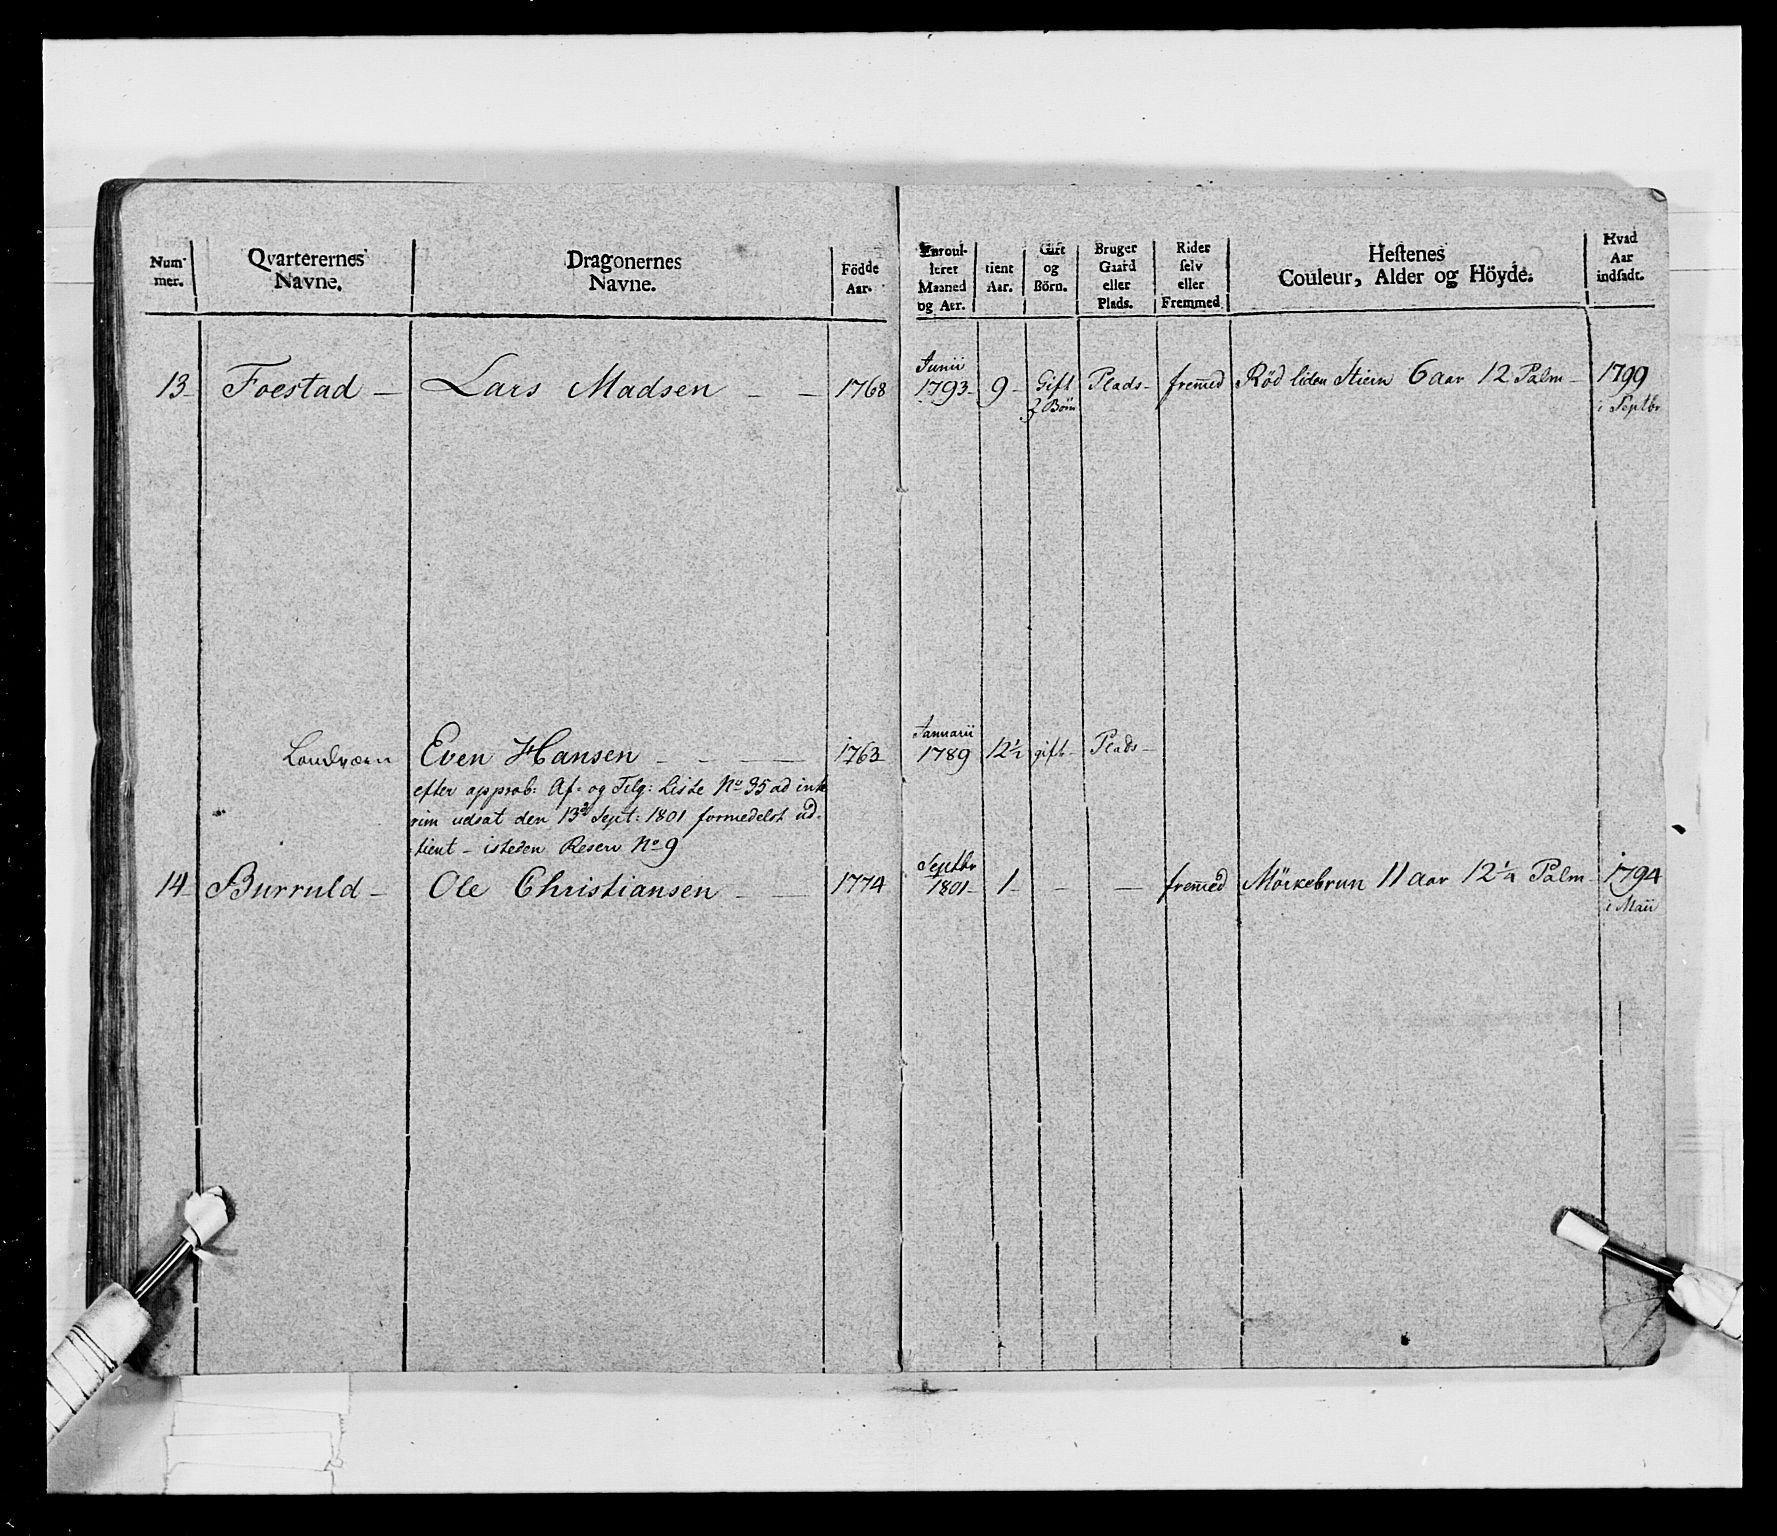 Num-
mer.
Qvarterernes
Navne.
Dragonernes
Navne.
Födde
Aar.
Enroul-
leret
Maaned
og Aar.
tient
Aar.
Gift
og
Börn.
Bruger
Gaard
eller
Plads.
Rider
selv
eller
Fremmed
Hestenes
Couleur, Alder og Höyde.
Hvad
Aar
indsadt.
Junii
13 Foestad — Lars Madsen — — 1768 1793 9 Gift Plads fremed Rød liden Stiern 6 aar 12 Palm 1799
2 Börn i Septbr
Januarii
Landværn Even Hansen — — — 1763 1789 12½ gift Plads
efter approb: Af- og Tilg: Liste No 35 ad inte
rim udsat den 13d Sept: 1801 formedelst ud-
tient — isteden Reserv No 9
Septbr
14 Burruld — Ole Christiansen — — 1774 1801 1 — — fremed Mörkebrun 11 aar 12¼ Palm 1794
i Maii